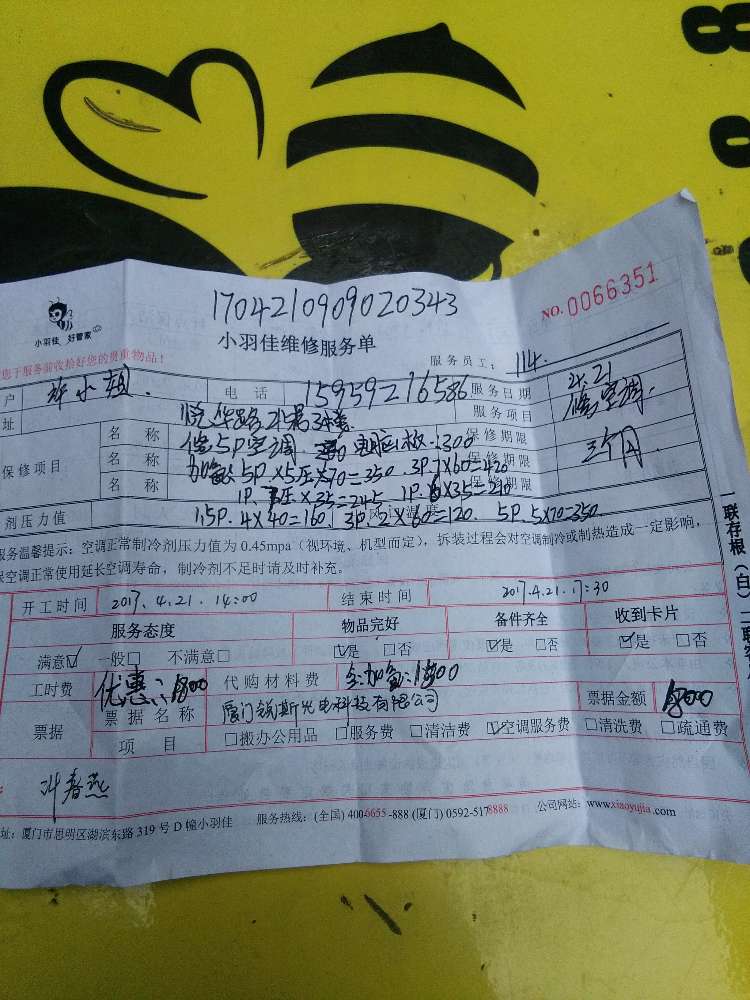 1704210909020343
NO. 0066351
小羽佳 好管家
小羽佳维修服务单
您于服务前收拾好您的贵重物品！
服务员工： 114.
户 许小姐. 电话 15959216586 服务日期 4.21
址 悦华路 服务项目 修空调.
保修项目 名称 修5P空调 300 保修期限 三个月
名称 加氟 5P×5压×70=350 . 3P.7×60=420 保修期限
名称 1P. 7压×35=245 1P.6×35=210 保修期限
剂压力值 1.5P. 4×40=160. 3P.2×60=120. 5P.5×70=350
服务温馨提示：空调正常制冷剂压力值为 0.45mpa（视环境、机型而定），拆装过程会对空调制冷或制热造成一定影响，
保空调正常使用延长空调寿命，制冷剂不足时请及时补充。
开工时间 2017.4.21.14:00 结束时间 2017.4.21.17:30
服务态度 物品完好 备件齐全 收到卡片
满意☑ 一般□ 不满意□ ☑是 □否 ☑是 □否 ☑是 □否
工时费 优惠: 1800 代购材料费 票据金额 1800
票据 票据名称 厦门锐斯光电科技有限公司
项目 □搬办公用品 □服务费 □清洁费 ☑空调服务费 □清洗费 □疏通费
叶春燕
址：厦门市思明区湖滨东路 319 号 D 幢小羽佳 服务热线：(全国) 4006655-888 (厦门) 0592-5178888 公司网站：www.xiaoyujia.com
一联存根（白）